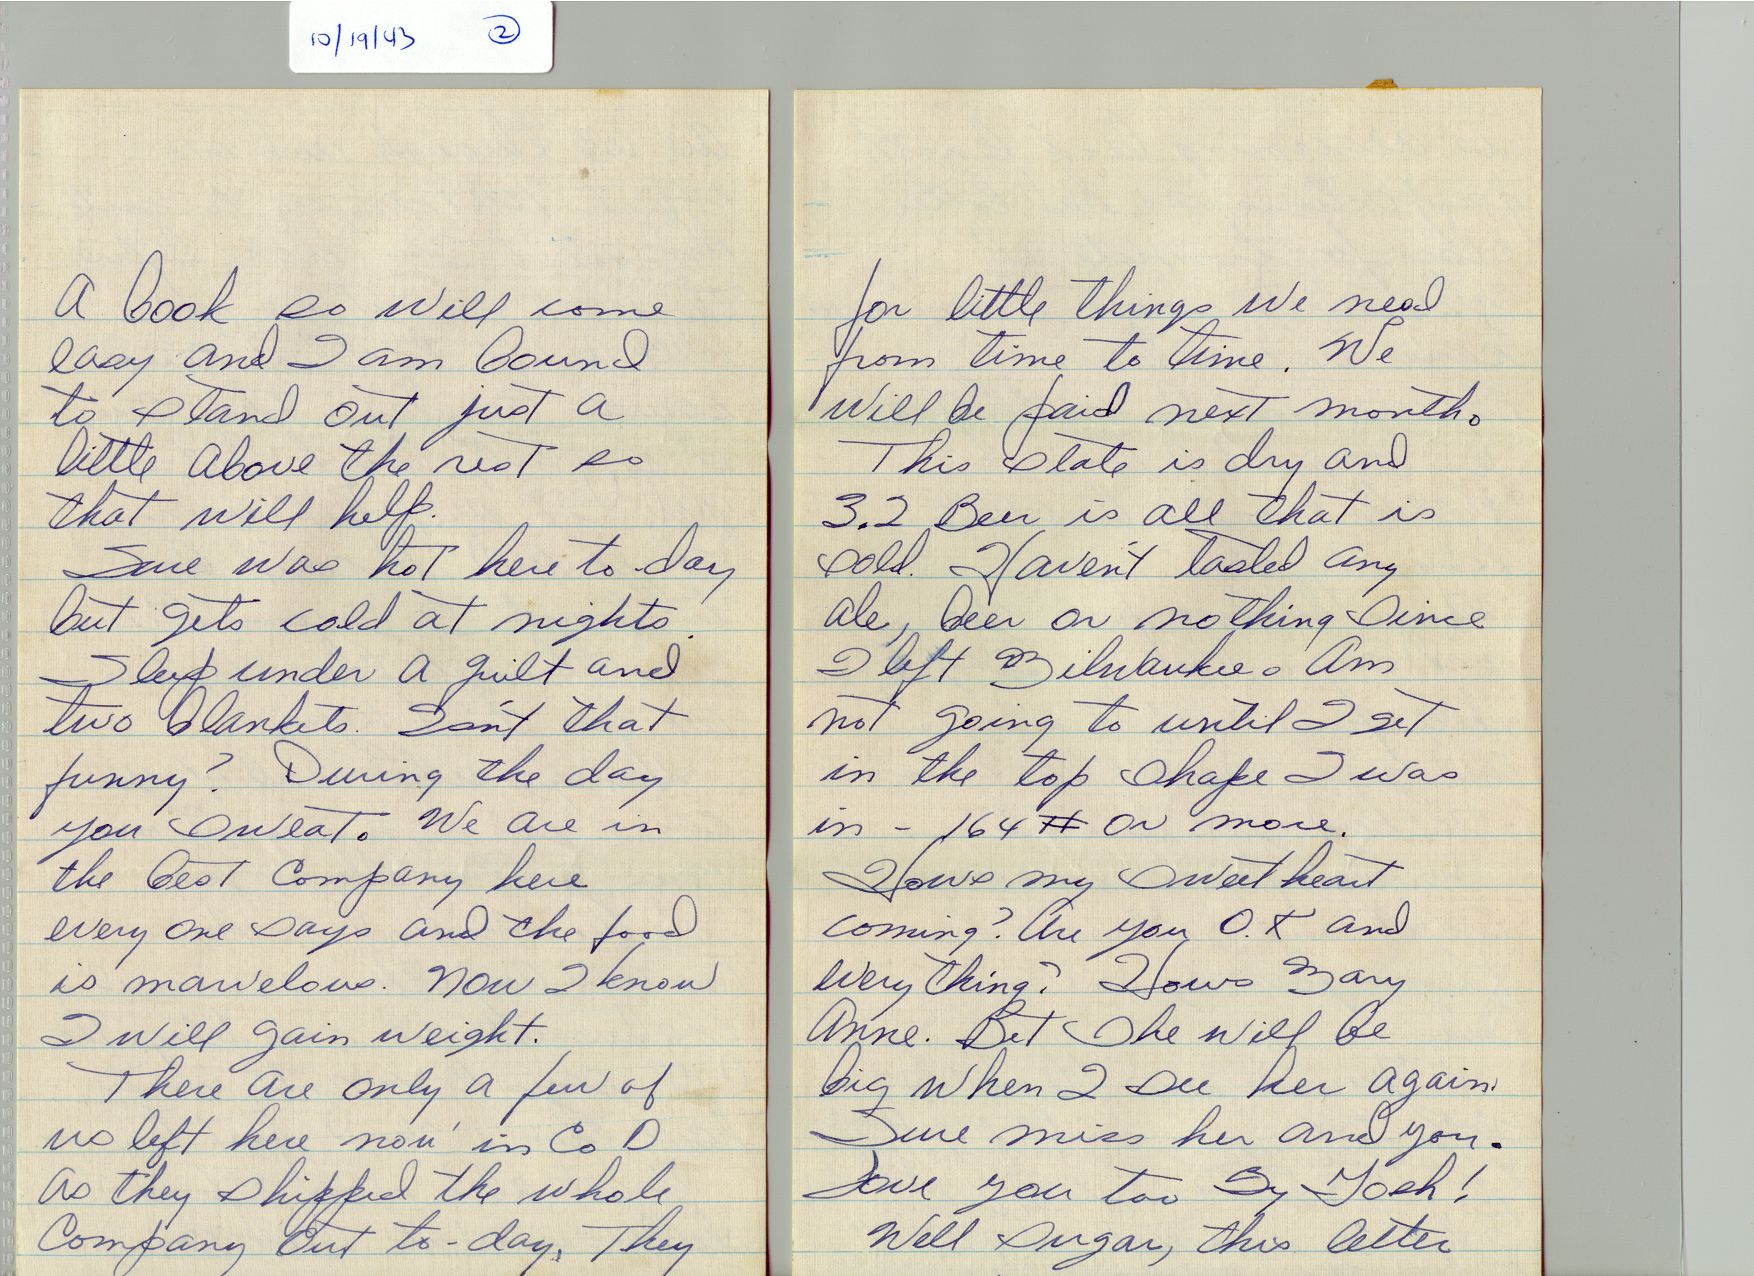 10/19/43 2
a book so will come
easy and I am bound
to stand out just a
little above the rest so
that will help.
Sure was hot here to-day
but gets cold at nights.
Sleep under a quilt and
two blankets. Isn't that
funny? During the day
you sweat. We are in
the best Company here
every one says and the food
is marvelous. Now I know
I will gain weight.
There are only a few of
us left here now in Co D
as they shipped the whole
Company out to-day. They
for little things we need
from time to time. We
will be paid next month.
This state is dry and
3.2 Beer is all that is
sold. Haven't tasted any
ale, beer or nothing since
I left Milwaukee. Am
not going to until I get
in the top shape I was
in - 164 # or more.
Hows my sweetheart
coming? Are you O.K and
everything? Hows Mary
Anne. Bet she will be
big when I see her again.
Sure miss her and you.
Love you too By Gosh!
Well sugar, this letter